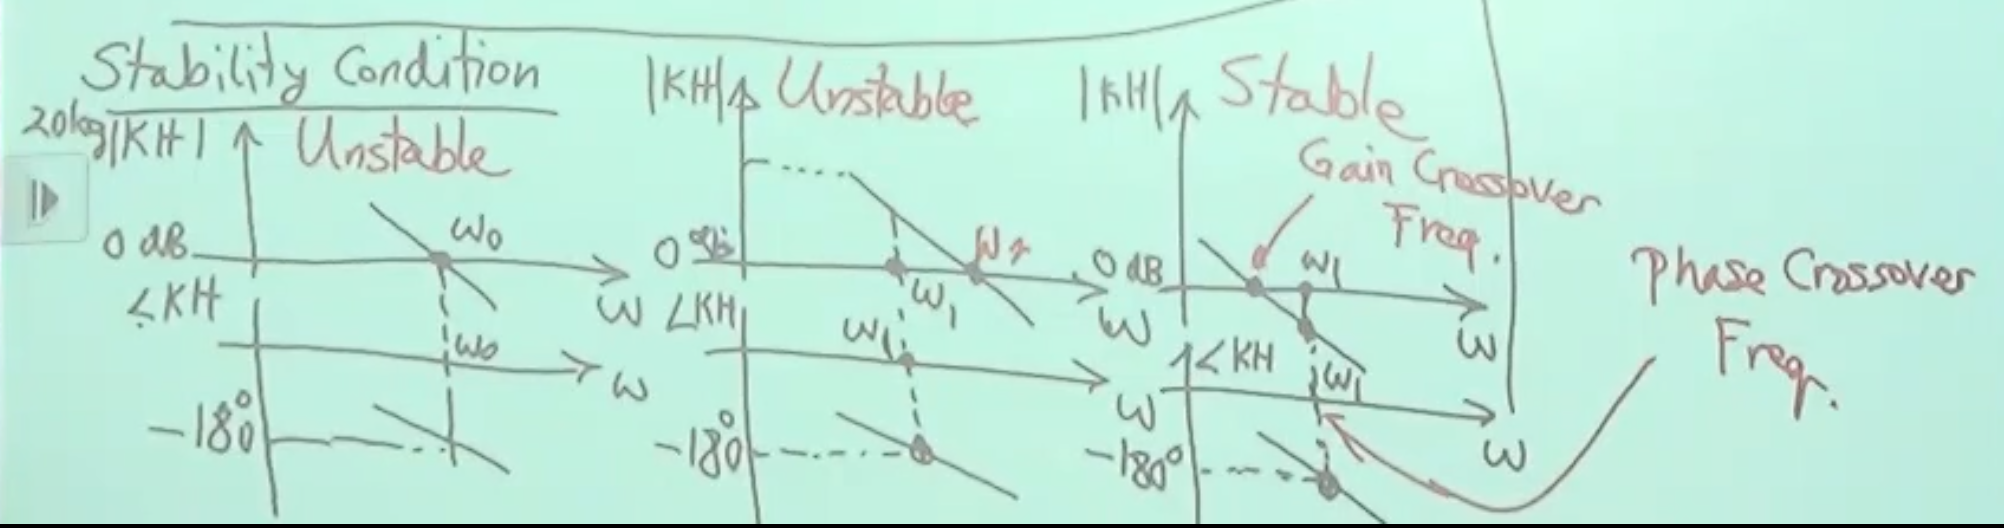 Stability Condition
20log|KH|
Unstable
0 dB
ω0
ω
∠KH
ω0
ω
-180°
|KH|
Unstable
0 dB
ω1
ω
∠KH
ω1
ω
-180°
|KH|
Stable
Gain Crossover
Freq.
0 dB
ω1
ω
∠KH
ω1
ω
-180°
Phase Crossover
Freq.